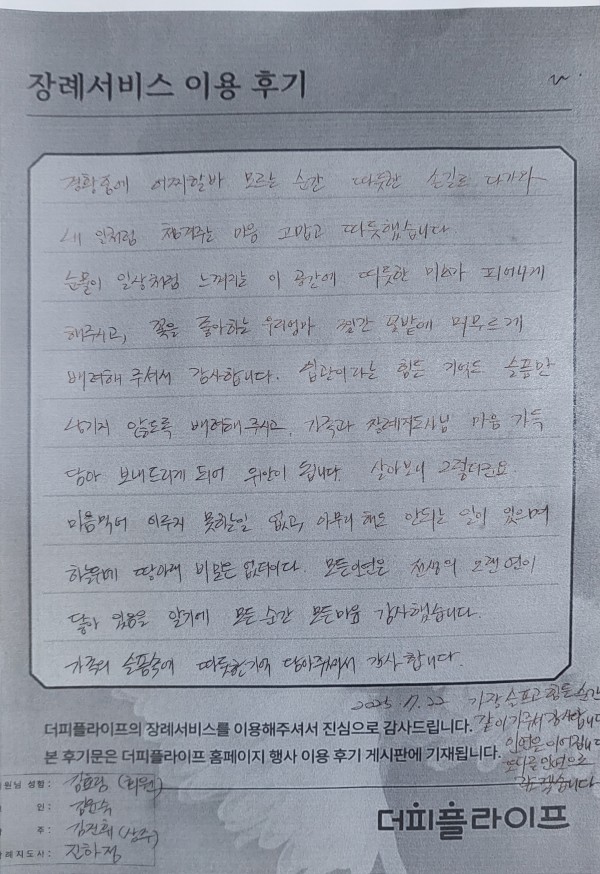 장례서비스 이용 후기
경황중에 어찌할바 모르는 순간 따듯한 손길로 다가와
내 일처럼 챙겨주는 마음 고맙고 따듯했습니다
눈물이 일상처럼 느껴지는 이 공간에 따듯한 미소가 피어나게
해주시고, 꽃을 좋아하는 우리엄마 찜간 꽃밭에 머무르게
배려해 주셔서 감사합니다. 입관이라는 힘든 기억도 슬픔만
남기지 않도록 배려해주시고, 가족과 장례지도사님 마음 가득
담아 보내드리게 되어 위안이 됩니다. 살아보니 그렇더군요
마음먹어 이루지 못하는일 없고, 아무리 해도 안되는 일이 있으며
하늘위에 땅아래 비밀은 없더이다. 모든인연은 전생의 오랜 연이
닿아 있음을 알기에 모든 순간 모든마음 감사했습니다.
가족의 슬픔속에 따듯한기억 담아주셔서 감사합니다.
2025. 7. 22 가장 슬프고 힘든 순간
더피플라이프의 장례서비스를 이용해주셔서 진심으로 감사드립니다. 같이 가주셔서 감사합니다
본 후기문은 더피플라이프 홈페이지 행사 이용 후기 게시판에 기재됩니다. 인연은 이어집니다
또다른 인연으로
원님 성함: 김효림 (회원)
인: 김문숙
주: 김진희 (상주)
례지도사: 진하정
더피플라이프